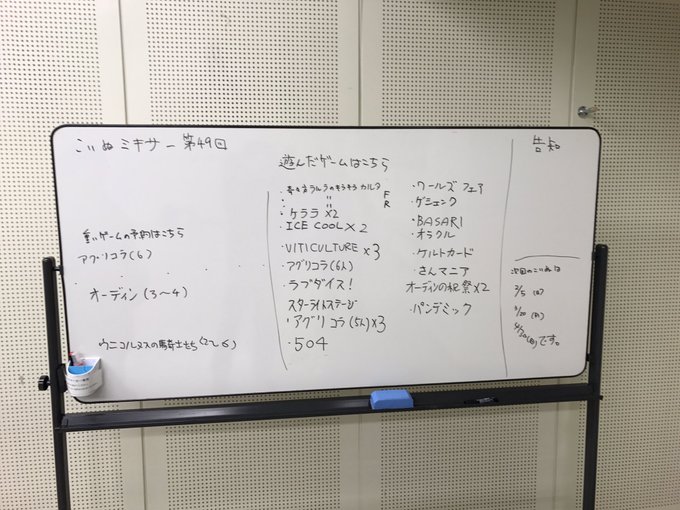 こいぬミキサー第49回
重いゲームの予約はこちら
アグリコラ(6)
オーディン(3~4)
ウニコルヌスの騎士たち(2~6)
遊んだゲームはこちら
F
〃 R
・ケララ×2
・ICE COOL×2
・VITICULTURE×3
・アグリコラ(6人)
・ラブダイス!
スターライトステージ
・アグリコラ(5人)×3
・504
・ワールズフェア
・ゲシェンク
・BASARI
・オラクル
・ケルトカード
・さんマニア
オーディンの祝祭×2
・パンデミック
告知
次回のこいぬは
2/5
3/20
です。